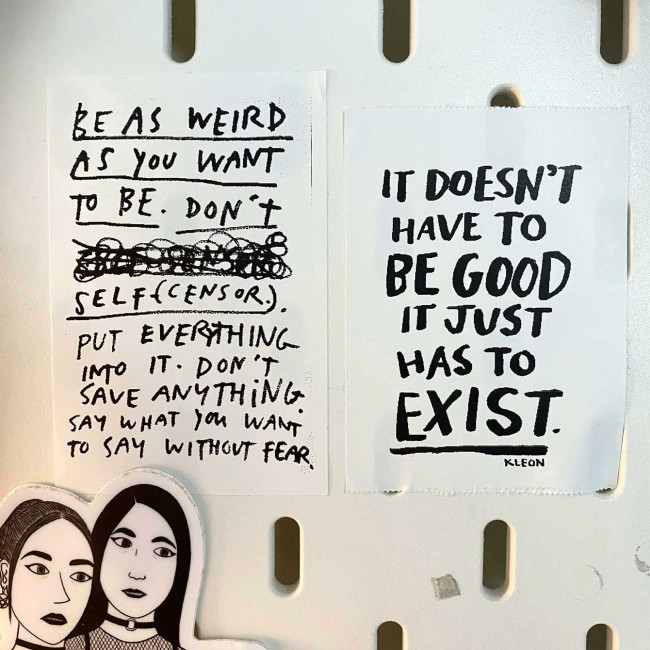 BE AS WEIRD
AS YOU WANT
TO BE. DON'T
SELF-(CENSOR).
PUT EVERYTHING
INTO IT. DON'T
SAVE ANYTHING.
SAY WHAT YOU WANT
TO SAY WITHOUT FEAR.
IT DOESN'T
HAVE TO
BE GOOD
IT JUST
HAS TO
EXIST.
KLEON